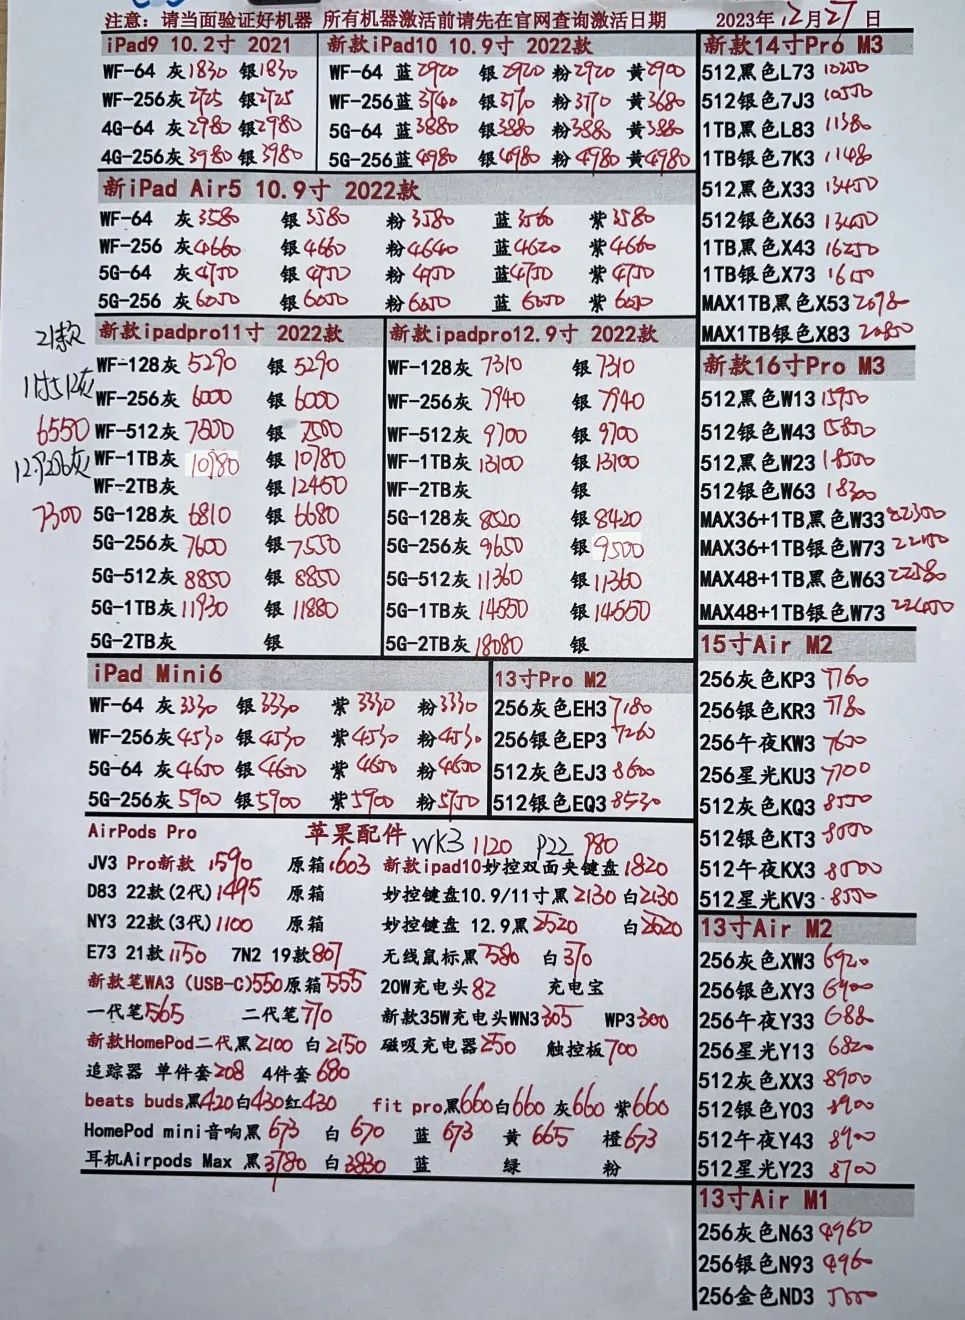 注意：请当面验证好机器 所有机器激活前请先在官网查询激活日期 2023年12月27日
iPad9 10.2寸 2021
WF-64 灰1830 银1830
WF-256灰2725 银2725
4G-64 灰2980 银2980
4G-256灰3980 银3980
新款iPad10 10.9寸 2022款
WF-64 蓝2920 银2920 粉2920 黄2900
WF-256蓝3740 银3770 粉3770 黄3680
5G-64 蓝3880 银3880 粉3880 黄3880
5G-256蓝4980 银4980 粉4980 黄4980
新iPad Air5 10.9寸 2022款
WF-64 灰3580 银3580 粉3580 蓝3560 紫3580
WF-256 灰4660 银4660 粉4640 蓝4620 紫4660
5G-64 灰4750 银4750 粉4750 蓝4750 紫4750
5G-256 灰6050 银6050 粉6050 蓝6050 紫6050
21款
11寸512灰
6550
12.9256灰
7300
新款ipadpro11寸 2022款
WF-128灰 5290 银 5290
WF-256灰 6000 银 6000
WF-512灰 7500 银 7500
WF-1TB灰 10980 银 10780
WF-2TB灰 银 12450
5G-128灰 6810 银 6680
5G-256灰 7600 银 7550
5G-512灰 8850 银 8850
5G-1TB灰 11930 银 11880
5G-2TB灰 银
新款ipadpro12.9寸 2022款
WF-128灰 7310 银 7310
WF-256灰 7940 银 7940
WF-512灰 9700 银 9700
WF-1TB灰 13100 银 13100
WF-2TB灰 银
5G-128灰 8520 银 8420
5G-256灰 9650 银 9500
5G-512灰 11360 银 11360
5G-1TB灰 14550 银 14550
5G-2TB灰 18080 银
iPad Mini6
WF-64 灰3330 银3330 紫3330 粉3330
WF-256灰4530 银4530 紫4530 粉4530
5G-64 灰4650 银4650 紫4650 粉4650
5G-256灰5900 银5900 紫5900 粉5750
13寸Pro M2
256灰色EH3 7180
256银色EP3 7260
512灰色EJ3 8600
512银色EQ3 8530
AirPods Pro 苹果配件 WK3 1120 P22 980
JV3 Pro新款 1590 原箱1603 新款ipad10妙控双面夹键盘1820
D83 22款(2代)1495 原箱 妙控键盘10.9/11寸黑2130 白2130
NY3 22款(3代)1100 原箱 妙控键盘 12.9黑2520 白2520
E73 21款1150 7N2 19款807 无线鼠标黑580 白370
新款笔WA3 (USB-C)550原箱555 20W充电头82 充电宝
一代笔565 二代笔710 新款35W充电头WN3 305 WP3 300
新款HomePod二代黑2100 白2150 磁吸充电器250 触控板700
追踪器 单件套208 4件套680
beats buds黑420白430红430 fit pro黑660白660 灰660 紫660
HomePod mini音响黑673 白670 蓝673 黄665 橙673
耳机Airpods Max 黑3780 白3830 蓝 绿 粉
新款14寸Pro M3
512黑色L73 10250
512银色7J3 10550
1TB黑色L83 11380
1TB银色7K3 11480
512黑色X33 13450
512银色X63 13450
1TB黑色X43 16250
1TB银色X73
MAX1TB黑色X53
MAX1TB银色X83 20850
新款16寸Pro M3
512黑色W13 15950
512银色W43 15850
512黑色W23 18500
512银色W63 18300
MAX36+1TB黑色W33 22300
MAX36+1TB银色W73 22150
MAX48+1TB黑色W63 22580
MAX48+1TB银色W73
15寸Air M2
256灰色KP3 7760
256银色KR3 7780
256午夜KW3 7650
256星光KU3 7700
512灰色KQ3 8550
512银色KT3 8500
512午夜KX3 8500
512星光KV3 8550
13寸Air M2
256灰色XW3 6920
256银色XY3 6900
256午夜Y33 6880
256星光Y13 6820
512灰色XX3 8900
512银色Y03 8900
512午夜Y43 8900
512星光Y23 8700
13寸Air M1
256灰色N63 4960
256银色N93 4960
256金色ND3